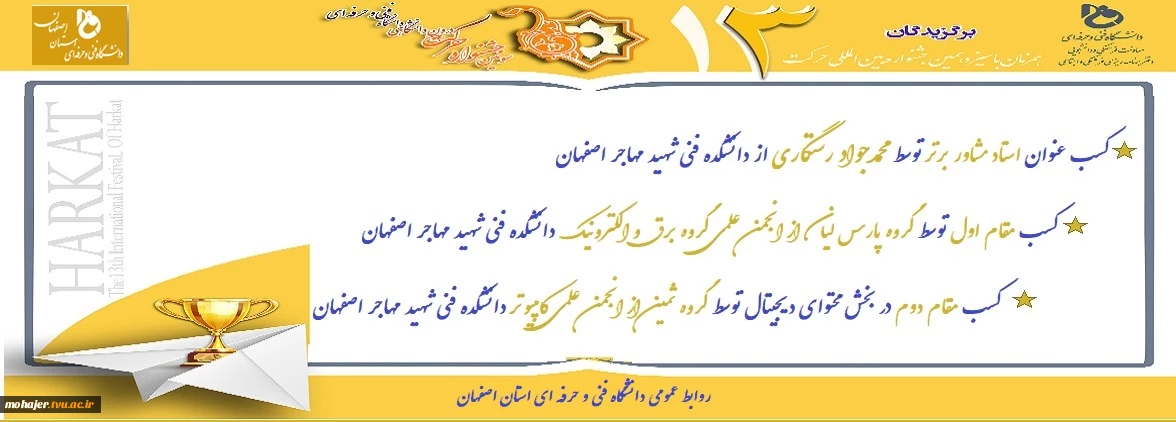 دانشگاه فنی و حرفه ای
معاونت فرهنگی و دانشجویی
دفتر برنامه ریزی فرهنگی و اجتماعی
برگزیدگان
همزمان با سیزدهمین جشنواره بین المللی حرکت
۱۳
دانشگاه فنی و حرفه ای
استان اصفهان
HARKAT
The 13th International Festival Of Harkat
کسب عنوان استاد مشاور برتر توسط محمدجواد رستگاری از دانشکده فنی شهید مهاجر اصفهان
کسب مقام اول توسط گروه پارس لیان از انجمن علمی گروه برق و الکترونیک دانشکده فنی شهید مهاجر اصفهان
کسب مقام دوم در بخش محتوای دیجیتال توسط گروه ثمین از انجمن علمی کامپیوتر دانشکده فنی شهید مهاجر اصفهان
روابط عمومی دانشگاه فنی و حرفه ای استان اصفهان
mohajer.tvu.ac.ir